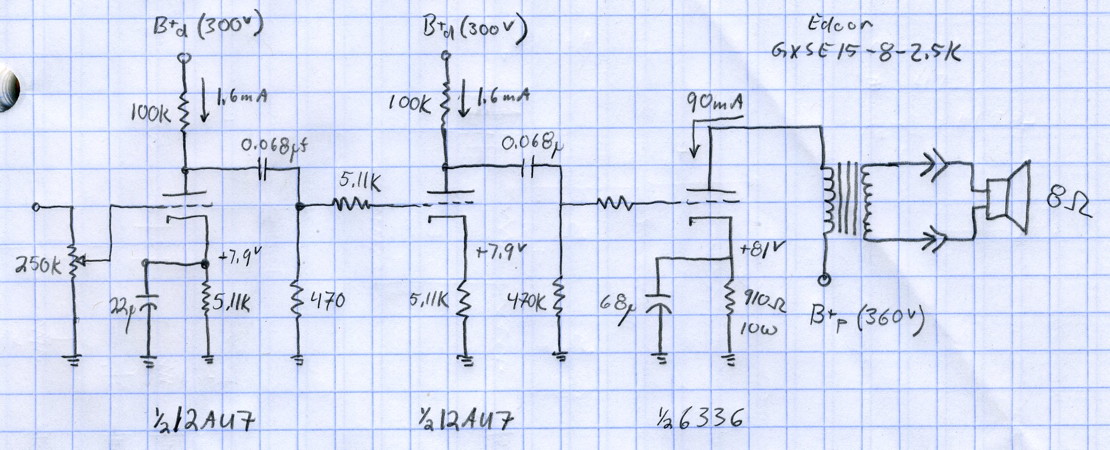 B+d (300v)
B+d (300v)
Edcor
GXSE15-8-2.5K
1.6mA
100K
1.6mA
100K
90mA
0.068µf
0.068µ
5.11K
8Ω
250K
+7.9v
+7.9v
+81v
22µ
5.11K
470
5.11K
470K
68µ
910Ω
10W
B+p (360v)
½12AU7
½12AU7
½6336